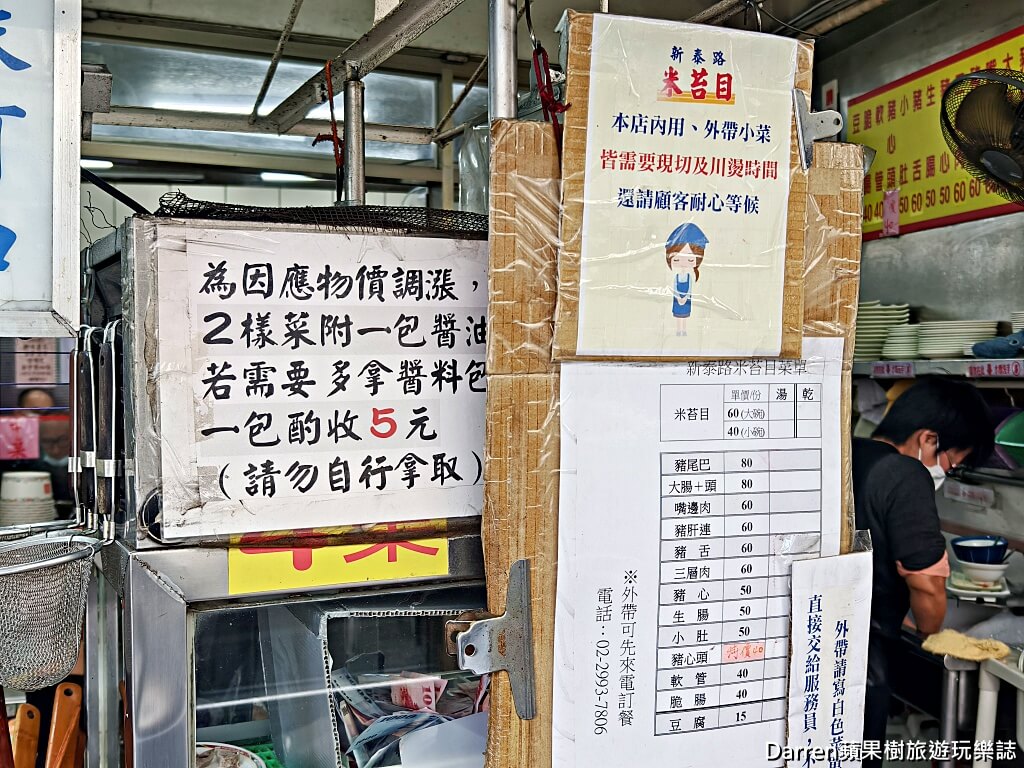 為因應物價調漲，
2樣菜附一包醬油
若需要多拿醬料包
一包酌收5元
（請勿自行拿取）
新泰路
米苔目
本店內用、外帶小菜
皆需要現切及川燙時間
還請顧客耐心等候
新泰路米苔目菜單
單價/份 湯 乾
米苔目 60(大碗)
40(小碗)
豬尾巴 80
大腸+頭 80
嘴邊肉 60
豬肝連 60
豬舌 60
三層肉 60
豬心 50
生腸 50
小肚 50
豬心頭 特價40
軟管 40
脆腸 40
豆腐 15
※外帶可先來電訂餐
電話：02-2993-7806
外帶請寫白色菜單
直接交給服務員，不
豆脆軟豬小豬生
心
管頭肚舌腸心
40 50 60 50 50 60 60
Darren蘋果樹旅遊玩樂誌